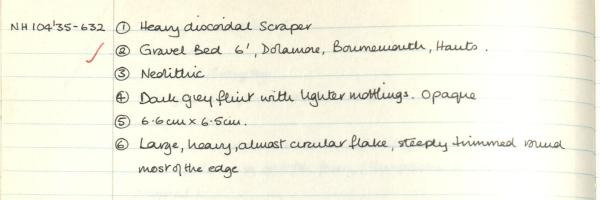 NH 104'35-632 ① Heavy discoidal Scraper
② Gravel Bed 6', Dolamore, Bournemouth, Hants.
③ Neolithic
④ Dark grey flint with lighter mottlings. Opaque
⑤ 6.6cm x 6.5cm.
⑥ Large, heavy, almost circular flake, steeply trimmed round
most of the edge